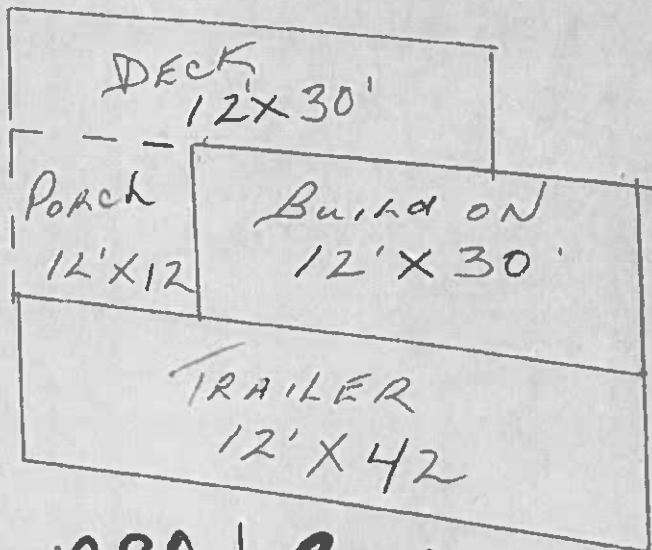 DECK
12'X30'
PORCH
12'X12
BUILD ON
12'X30'
TRAILER
12'X42